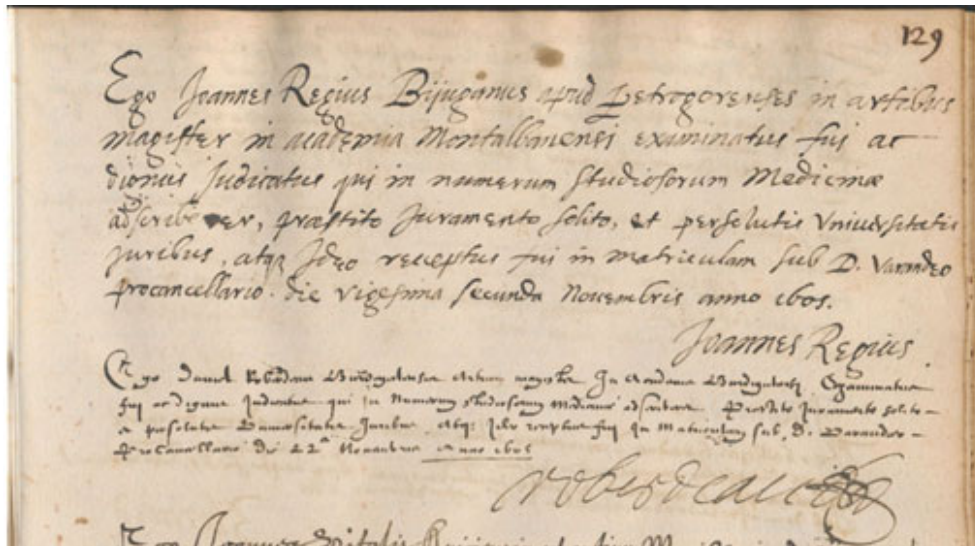 129
Ego Joannes Regius Bijuganus apud Petrogorenses in artibus
magister in academia Montalbanensi examinatus fui ac
dignus judicatus qui in numerum studiosorum Medicinæ
adscriberer, præstito juramento solito, et persolutis Universitatis
juribus, atq; Ideo receptus fui in matriculam sub D. Varandeo
procancellario. die vigesima secunda Novembris anno 1605.
Joannes Regius
Ego Daniel Burdigalensis artium magister In Academia Burdigalensi Examinatus
fui ac dignus Judicatus qui in Numerum studiosorum Medicinæ adscriberer Præstito Juramento solito
persolutis Universitatis Juribus Atq; Ideo receptus fui In Matriculam sub D. Varandeo
Procancellario Die 22ª Novembris Anno 1605
Ego Joannes Vitalis